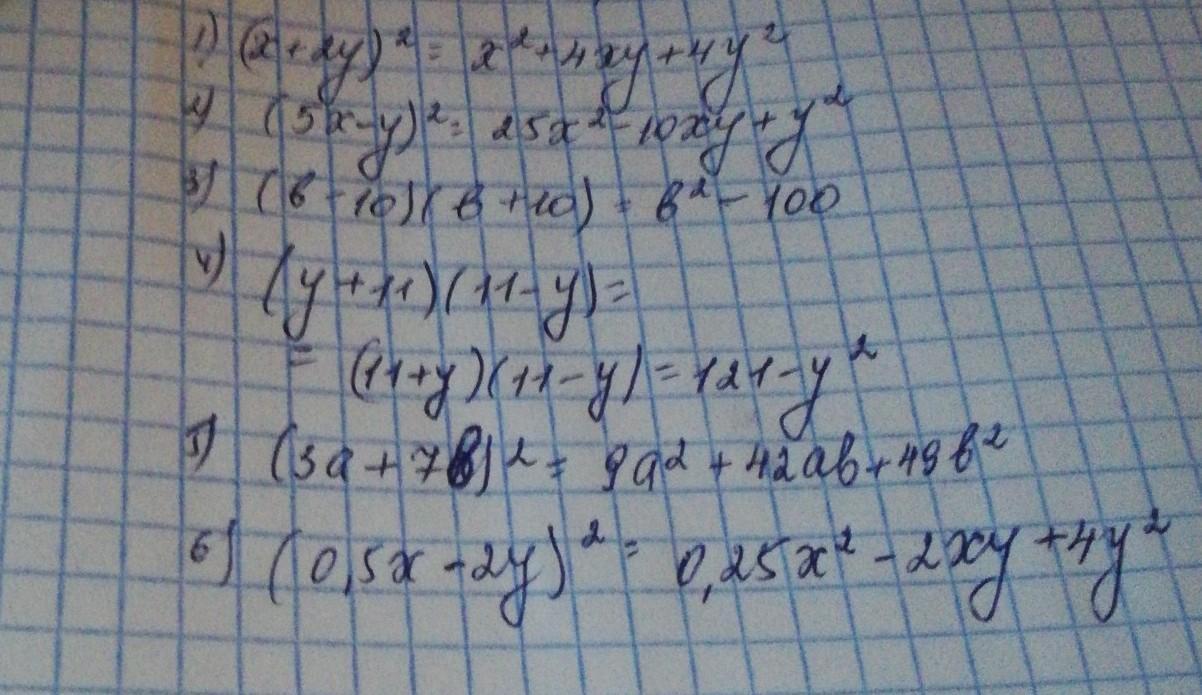 1) (x+2y)² = x²+4xy+4y²
2) (5x-y)² = 25x²-10xy+y²
3) (в-10)(в+10) = в²-100
4) (y+11)(11-y)=
= (11+y)(11-y)=121-y²
5) (3a+7в)² = 9a²+42aв+49в²
6) (0,5x-2y)² = 0,25x²-2xy+4y²